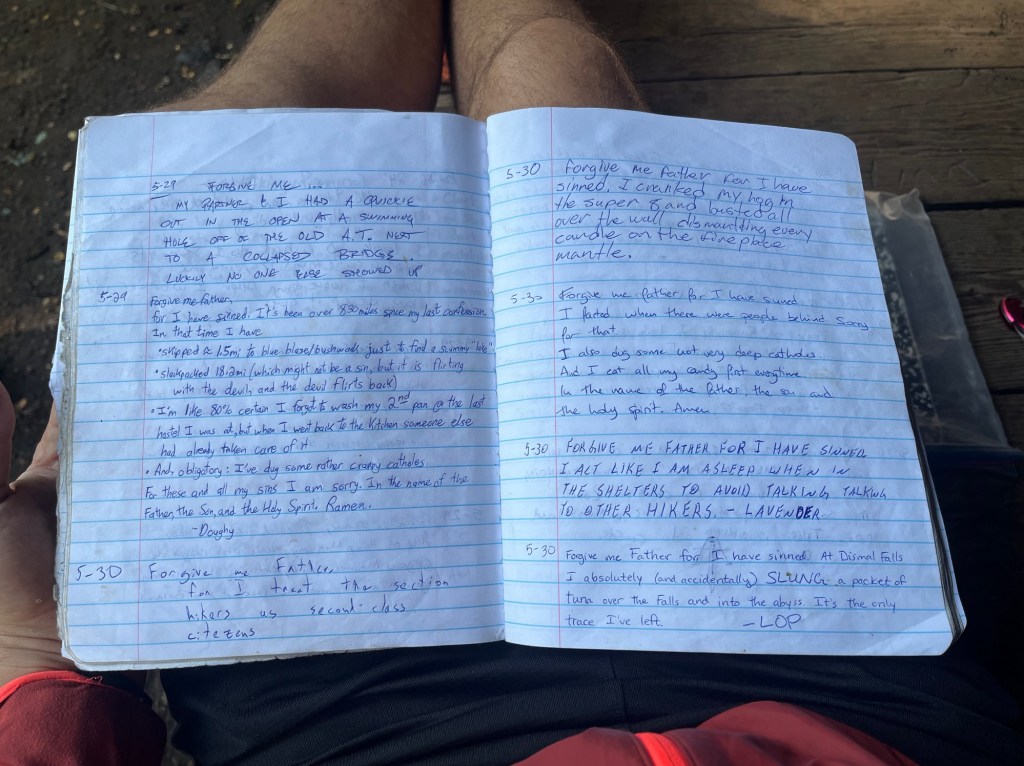 5-29 FORGIVE ME...
MY PARTNER & I HAD A QUICKIE
OUT IN THE OPEN AT A SWIMMING
HOLE OFF OF THE OLD A.T. NEXT
TO A COLLAPSED BRIDGE.
LUCKILY NO ONE ELSE SHOWED UP
5-29 Forgive me father,
for I have sinned. It's been over 850 miles since my last confession
In that time I have
• skipped ≈ 1.5mi to blue blaze/bushwack just to find a swimmy "hole"
• slackpacked 18.2mi (which might not be a sin, but it is flirting
with the devil, and the devil flirts back)
• I'm like 80% certain I forgot to wash my 2nd pan @ the last
hostel I was at, but when I went back to the kitchen someone else
had already taken care of it
• And, obligatory: I've dug some rather crappy catholes
For these and all my sins I am sorry. In the name of the
Father, the Son, and the Holy Spirit. Ramen.
-Doughy
5-30 Forgive me Father
for I treat the section
hikers as second-class
citezens
5-30 Forgive me father for I have
sinned. I cranked my hog in
the super 8 and busted all
over the wall dismantling every
candle on the fireplace
mantle.
5-30 Forgive me father for I have sinned
I farted when there were people behind Sorry
for that.
I also dug some not very deep catholes
And I eat all my candy first everytime
In the name of the father, the son and
the holy spirit. Amen
5-30 FORGIVE ME FATHER FOR I HAVE SINNED
I ACT LIKE I AM ASLEEP WHEN IN
THE SHELTERS TO AVOID TALKING TALKING
TO OTHER HIKERS. - LAVENDER
5-30 Fogive me Father for I have sinned. At Dismal Falls
I absolutely (and accidentally) SLUNG a packet of
tuna over the Falls and into the abyss. It's the only
trace I've left. -LOP